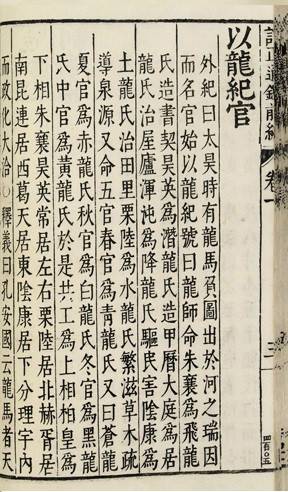 通鑑前編 卷一
以龍紀官
外紀曰太昊時有龍馬負圖出於河之瑞因
而名官始以龍紀號曰龍師命朱襄爲飛龍
氏造書契昊英爲潛龍氏造甲曆大庭爲居
龍氏治屋廬渾沌爲降龍氏驅民害陰康爲
土龍氏治田里栗陸爲水龍氏繁滋草木疏
導泉源又命五官春官爲青龍氏又曰蒼龍
夏官爲赤龍氏秋官爲白龍氏冬官爲黑龍
氏中官爲黃龍氏於是共工爲上相柏皇爲
下相朱襄昊英常居左右栗陸居北赫胥居
南昆連居西葛天居東陰康居下分理宇內
而政化大洽○釋義曰孔安國云龍馬者天